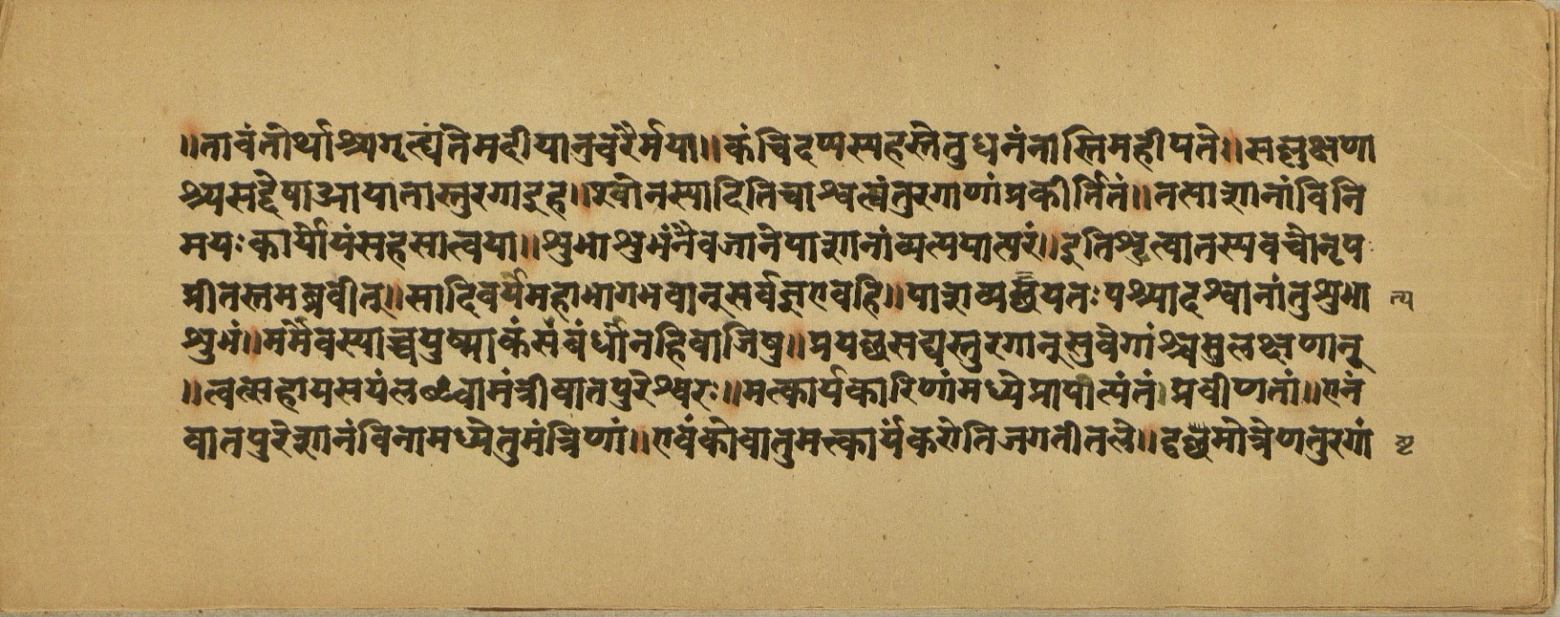 ॥तावंतोर्थाश्चगृत्द्यंतेमदीयानुचरैर्मया॥कंचिदप्यस्यहस्तेतुधनंनास्तिमहीपते॥सल्लक्षणा
श्चसद्वेषाआयातास्तुरगाइह॥श्वोनस्यादितिचाश्वत्वंतुरगाणांप्रकीर्तितं॥तत्साशानांविनि
मयःकार्योयंसहसात्वया॥शुभाशुभंनैवजानेपाशानांव्यत्ययात्परं॥इतिश्रुत्वातस्यवचोनृप
प्रीतस्तमब्रवीत्॥सादिवर्यमहाभागभवान्सर्वज्ञएवहि॥पाशव्यछयतःपश्यादश्वानांतुशुभा त्य
शुभं॥ममैवस्याच्चयुष्माकंसंबंधोनहिवाजिषु॥प्रयछसद्यस्तुरगान्सुवेगांश्चसुलक्षणान्
॥त्वत्सहायसयंलब्ध्वामंत्रीवातपुरेश्वरः॥मत्कार्यकारिणांमध्येप्रापात्यंतंप्रवीणतां॥एनं
वातपुरेशानंविनामध्येतुमंत्रिणां॥एवंकोवातुमत्कार्यंकरोतिजगतीतले॥दृछमात्रेणतुरगां ष्ट